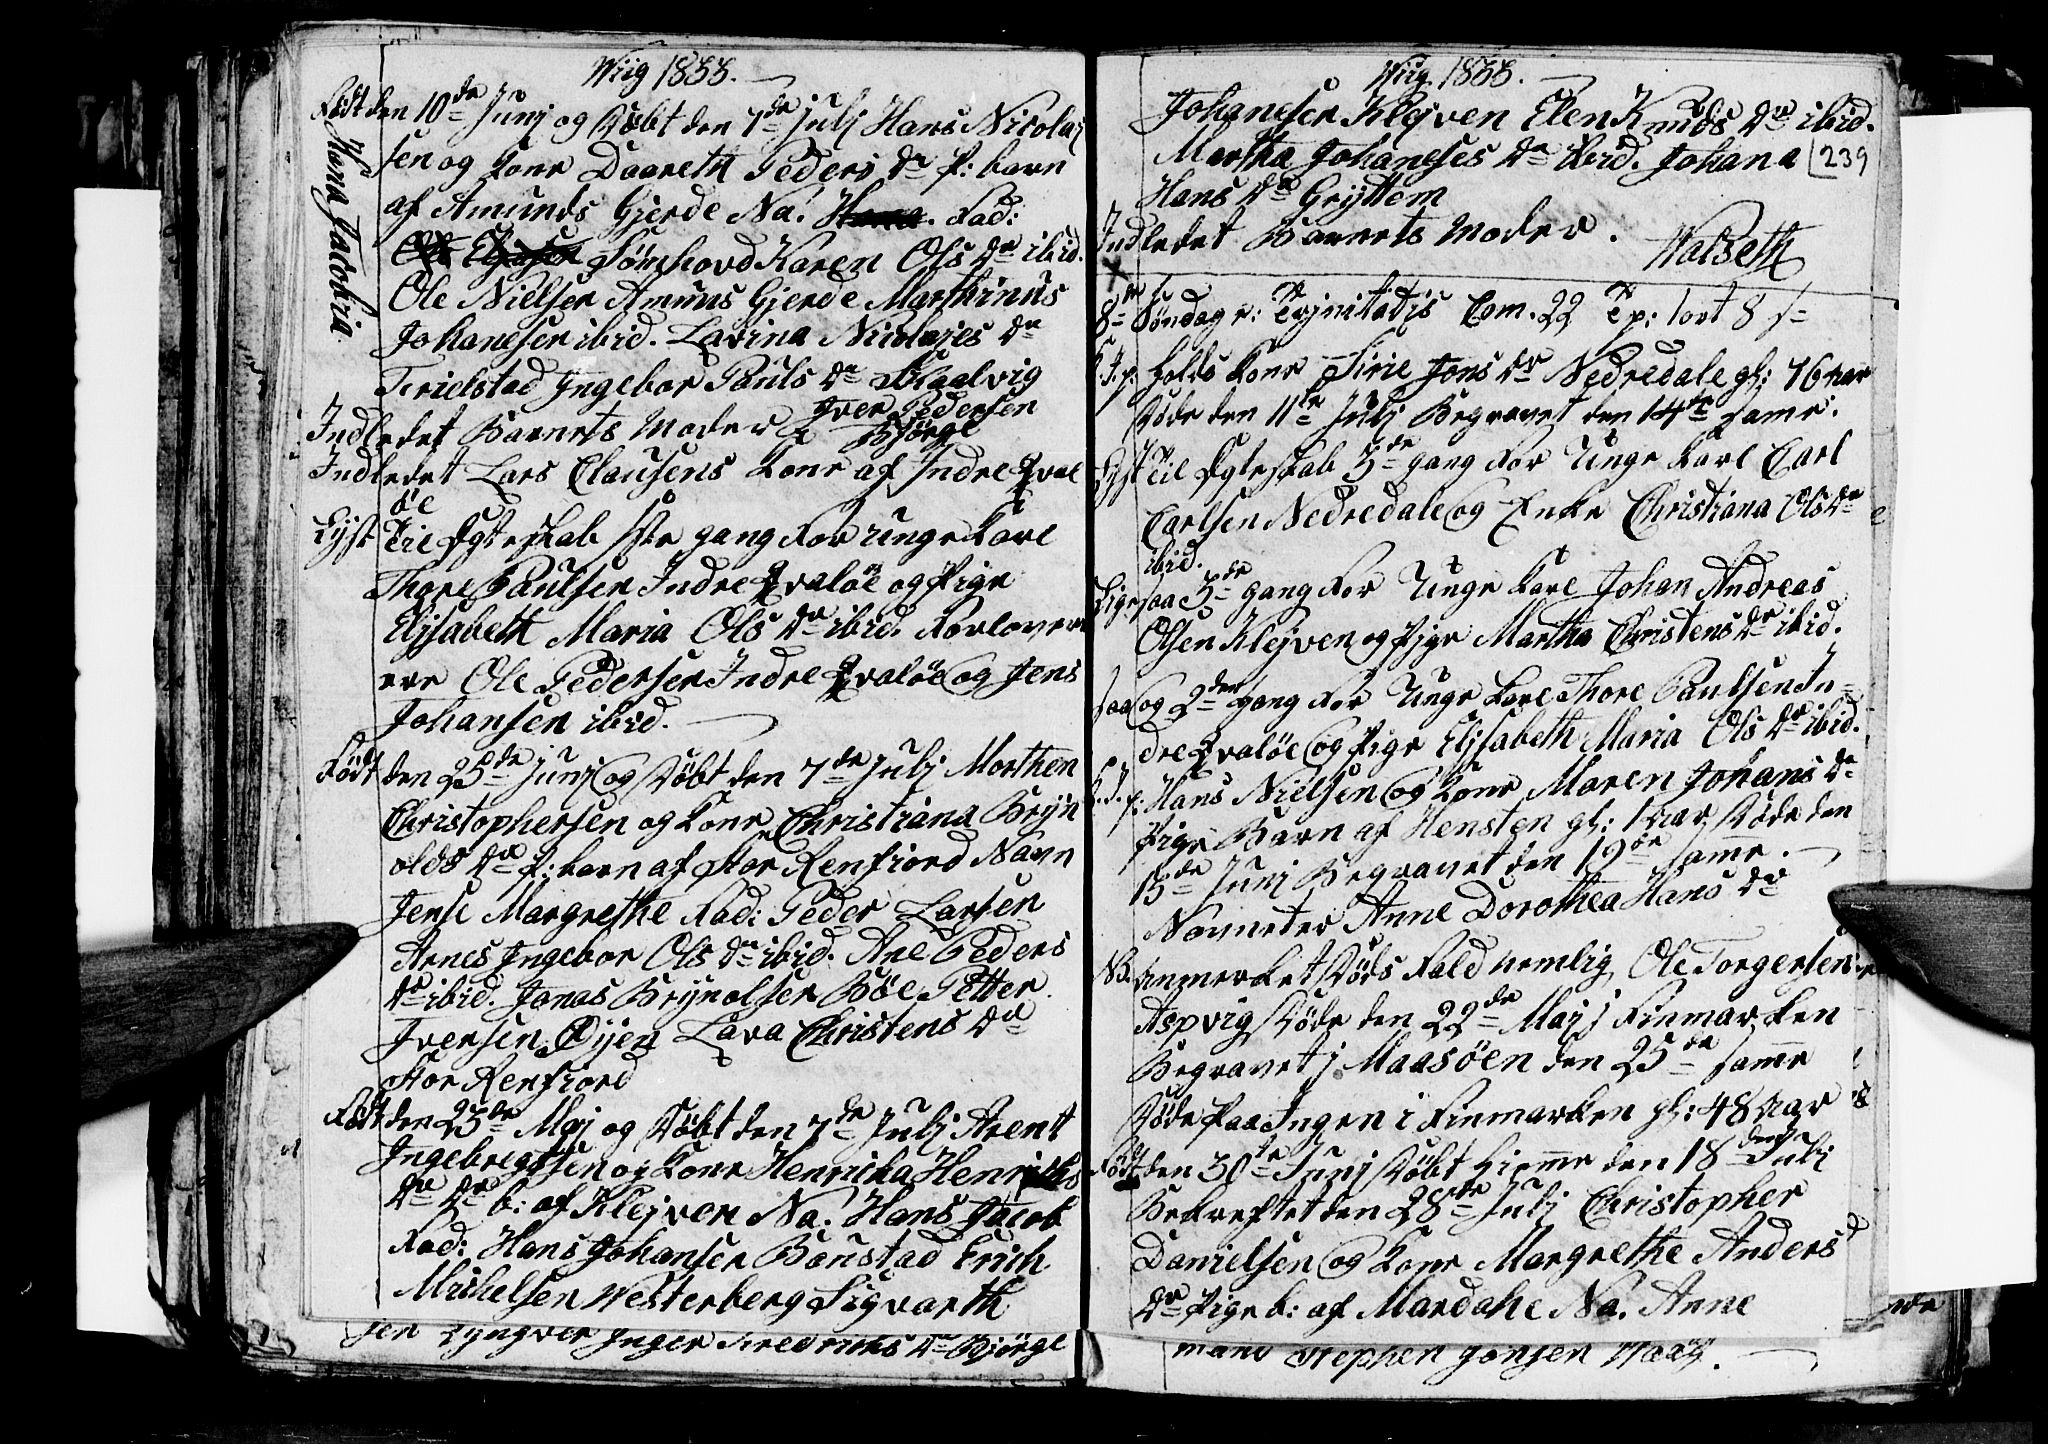 Wiig 1833.
Født den 10de Junj og Døbt den 7de Julj Hans Nicolaj
sen og kone Daareth Peders dr p: barn
af Amunds Gjerde Na: Fad:
Sømhovd Karen Ols dr ibid.
Ole Nielsen Amuns Gjerde Marthinus
Johanesen ibid. Lavina Nicolajes dr
Ingebor Pauls dr Skaalvig
Indledet Barnets Moder Iver Pedersen
Bjørge
Indledet Lars Clausens kone af Indre Qval
øe
Lyst til Ægteskab 1ste gang for unge karl
Thore Paulsen Indre Qvaløe og Pige
Elisabeth Maria Ols dr ibid. Forlover
ere Ole Pedersen Indre Qvaløe og Jens
Johansen ibid.
Født den 25de Junj og Døbt den 7de Julj Morthen
Christophersen og kone Christiana Bryn
olds dr p: barn af Stor Renfiord Navn
Jense Margrethe Fad: Peder Larsen
Arnes Ingebor Ols dr ibid. Ane Peders
dr ibid. Jonas Brynolsen Bøe Petter
Iversen Øijen Lava Christens dr
Stor Renfiord
Født den 23de Maj og Døbt den 7de Julj Arent
Ingebregtsen og kone Henrika Henriks
dr dr b: af Klejven Na: Hans Jacob
Fad: Hans Johansen Bonstad Erich
Michelsen Westerberg Sigvarth
sen Lyngver Inger Fredriks dr Bjørge
Hona Jacobia
Wiig 1833.
Johanesen Klejven Elen Knuds dr ibid.
Martha Johaneses dr ibid. Johana
239
Hans dr Gryttem
Indledet Barnets Moder.
Walseth
8de Søndag e: Trjnitatis Com. 22 Tp: 1ort 8 s
K. J. p: holds kone Sirie Jons dr Nedredale gl: 76 aar
Døde den 11te Julj Begravet den 14de same.
Lyst til Ægteskab 3de gang for Unge karl Carl
Carlsen Nedredale og Enke Christiana Ols dr
ibid.
Ligesaa 3de gang for Unge karl Johan Andreas
Olsen Klejven og Pige Martha Christens dr ibid.
saa og 2den gang for Unge karl Thore Paulsen In-
dre Qvaløe og Pige Elisabeth Maria Ols dr ibid.
K. J. p: Hans Nielsen og kone Maren Johans dr
Pige Barn af Hensten gl: 1 aar Døde den
15de Junj Begravet den 19de same.
Navneter Anne Dorothea Hans dr
NB. anmerket Døds Fald nemlig Ole Torgersen
Aspvig Døde den 22de Maj j Finmarken
Begravet j Maasøen den 25de same
Døde Paa Ingen i Finmarken gl: 48 aar
Født den 30te Junj Døbt hieme den 18den Julj
Bekreftet den 28de Julj Christopher
Danielsen og kone Margrethe Anders
dr Pige b: af Mardahe Na: Anne
mand Stephen Jonsen Waag.